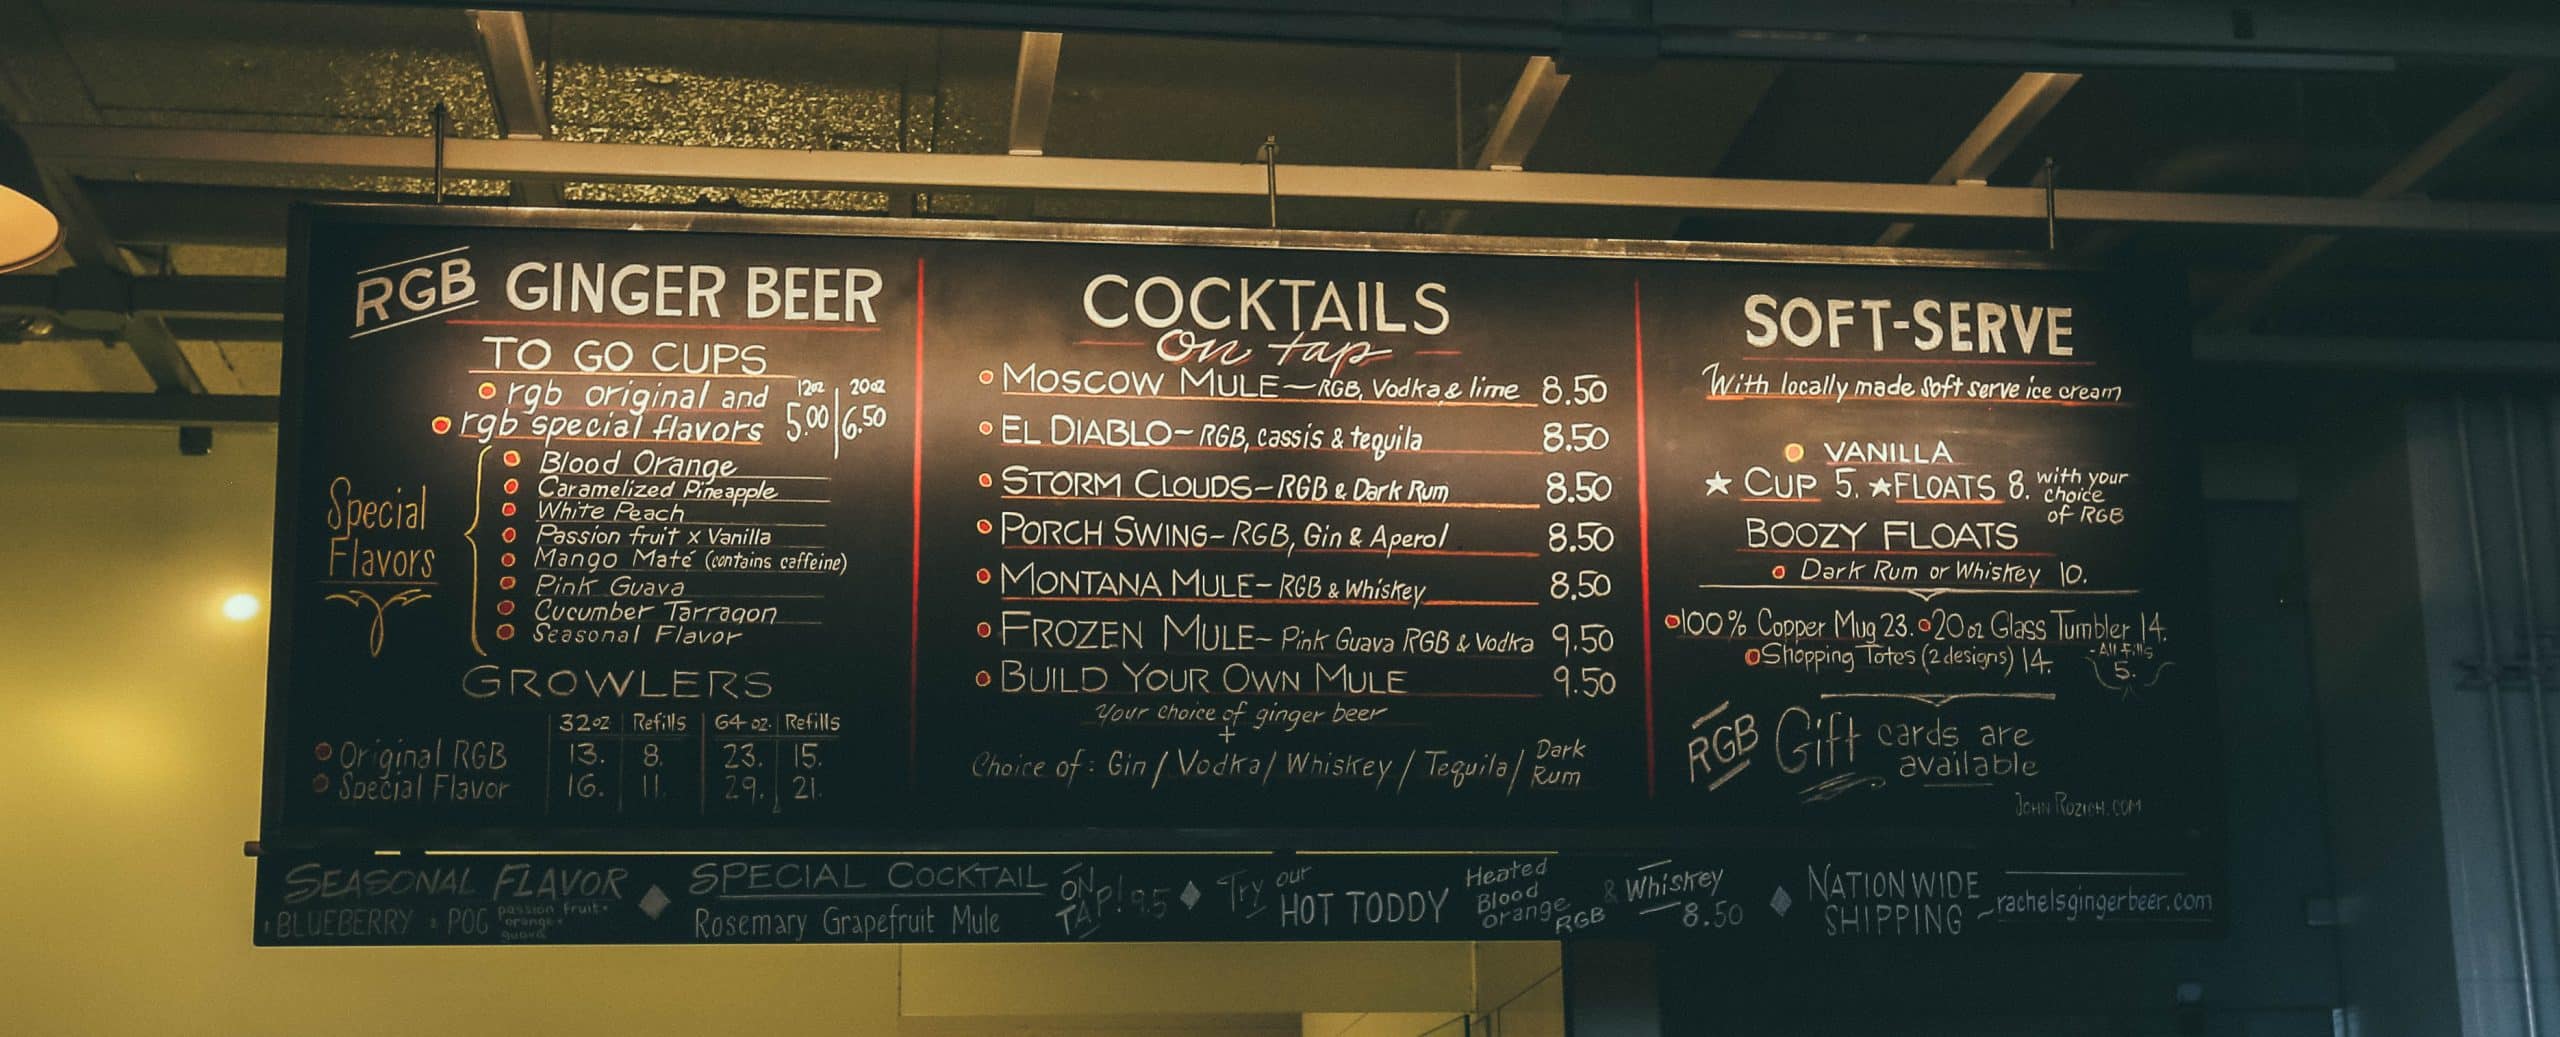 RGB GINGER BEER
TO GO CUPS
12oz 20oz
rgb original and
rgb special flavors 5.00 6.50
Special Flavors
Blood Orange
Caramelized Pineapple
White Peach
Passion fruit x Vanilla
Mango Maté (contains caffeine)
Pink Guava
Cucumber Tarragon
Seasonal Flavor
GROWLERS
32oz Refills 64 oz. Refills
Original RGB 13. 8. 23. 15.
Special Flavor 16. 11. 29. 21.
COCKTAILS
On tap
MOSCOW MULE—RGB, Vodka & lime 8.50
EL DIABLO—RGB, cassis & tequila 8.50
STORM CLOUDS—RGB & Dark Rum 8.50
PORCH SWING—RGB, Gin & Aperol 8.50
MONTANA MULE—RGB & Whiskey 8.50
FROZEN MULE—Pink Guava RGB & Vodka 9.50
BUILD YOUR OWN MULE 9.50
Your choice of ginger beer
+
Choice of: Gin / Vodka / Whiskey / Tequila / Dark Rum
SOFT-SERVE
With locally made soft serve ice cream
VANILLA
★ CUP 5. ★ FLOATS 8. with your choice of RGB
BOOZY FLOATS
Dark Rum or Whiskey 10.
100% Copper Mug 23. 20oz Glass Tumbler 14.
Shopping Totes (2 designs) 14.
-All fills 5.
RGB Gift cards are available
JOHN ROZICH.COM
SEASONAL FLAVOR
BLUEBERRY POG passion fruit orange guava
SPECIAL COCKTAIL ON TAP! 9.5
Rosemary Grapefruit Mule
Try our HOT TODDY Heated Blood Orange RGB & Whiskey 8.50
NATIONWIDE SHIPPING ~rachelsgingerbeer.com